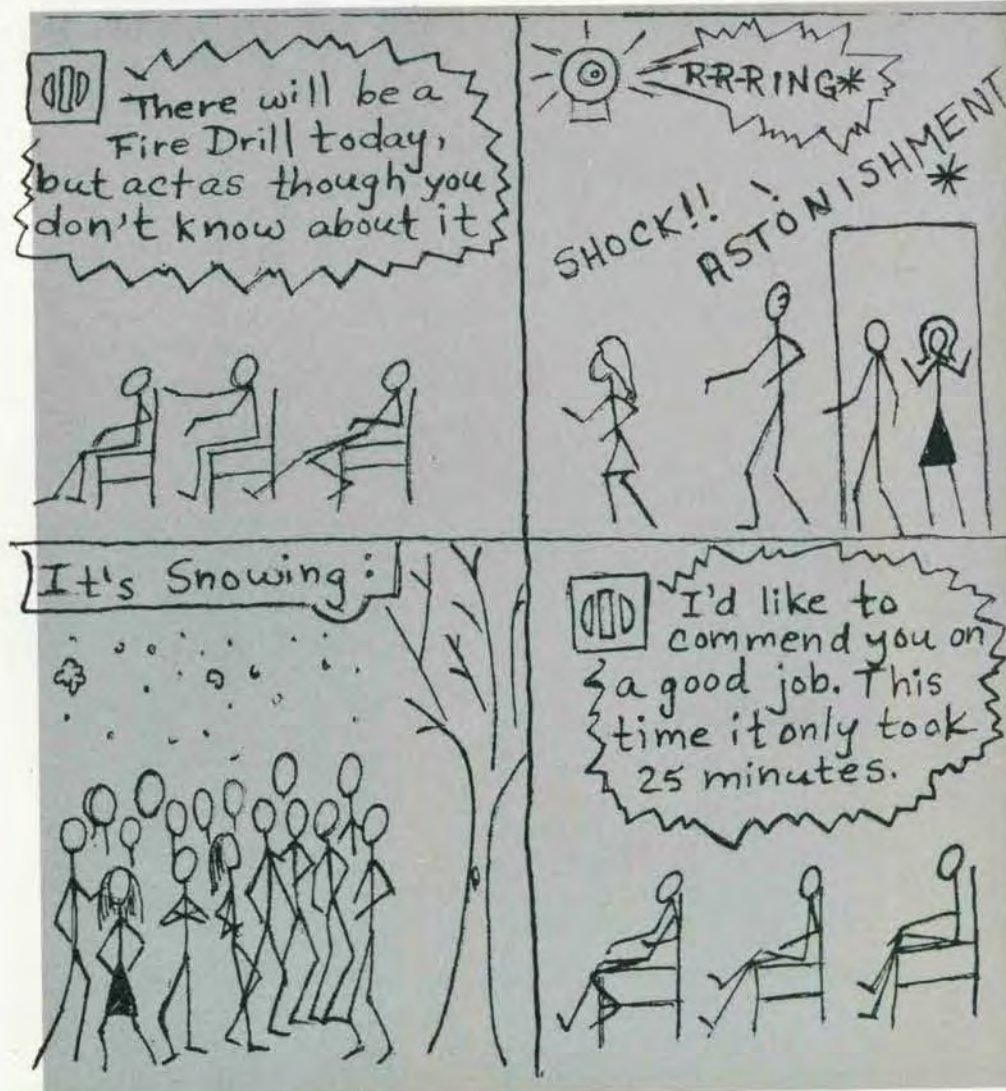 There will be a
Fire Drill today,
but act as though you
don't know about it
R-R-RING*
SHOCK!!
ASTONISHMENT
*
It's Snowing:
I'd like to
commend you on
a good job. This
time it only took
25 minutes.